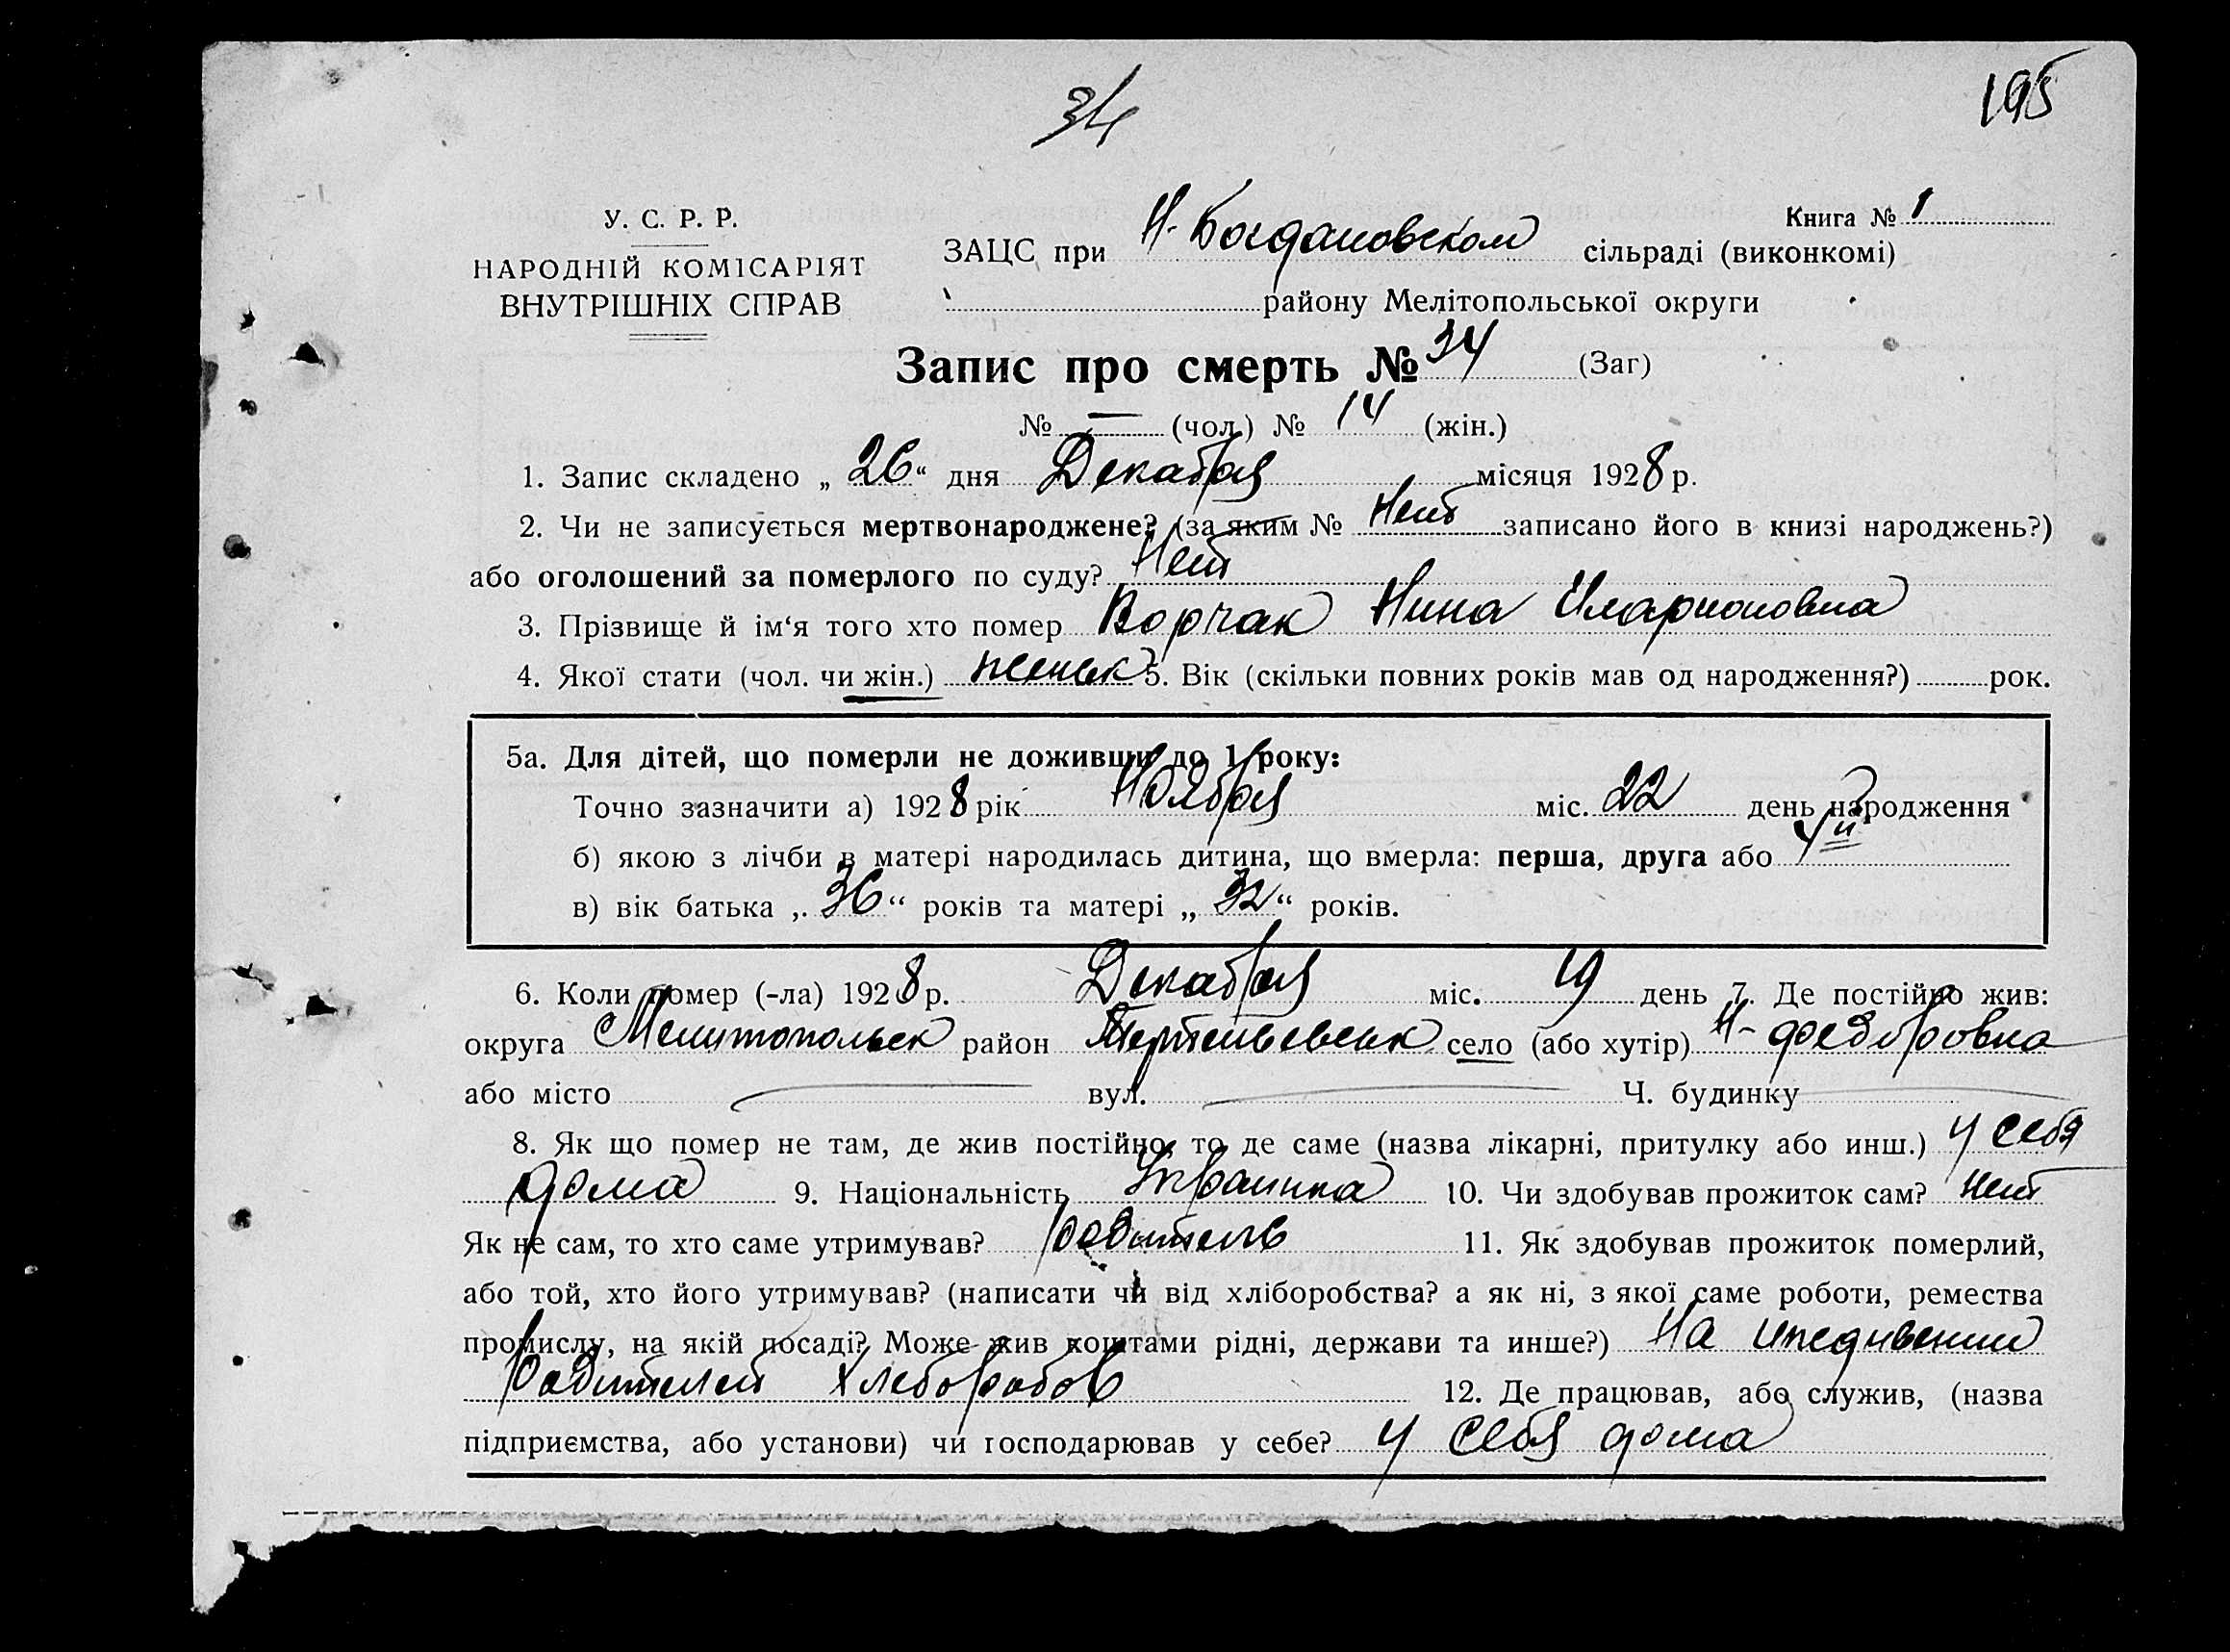 34
195
У. С. Р. Р.
НАРОДНІЙ КОМІСАРІЯТ
ВНУТРІШНІХ СПРАВ
Книга № 1
ЗАЦС при Н-Богдановском сільраді (виконкомі)
району Мелітопольської округи
Запис про смерть № 34 (Заг)
№ — (чол.) № 14 (жін.)
1. Запис складено „ 26 “ дня Декабря місяця 1928 р.
2. Чи не записується мертвонароджене? (за яким № Нет записано його в книзі народжень?)
або оголошений за померлого по суду? Нет
3. Прізвище й ім‘я того хто помер Ворчак Нина Иларионовна
4. Якої стати (чол. чи жін.) женск 5. Вік (скільки повних років мав од народження?) рок.
5а. Для дітей, що померли не доживши до 1 року:
Точно зазначити а) 1928 рік Ноября міс. 22 день народження
б) якою з лічби в матері народилась дитина, що вмерла: перша, друга або 4й
в) вік батька „ 36 “ років та матері „ 32 “ років.
6. Коли помер (-ла) 1928 р. Декабря міс. 19 день 7. Де постійно жив:
округа Мелитопольск район село (або хутір) Н-Федоровка
або місто — вул. — Ч. будинку —
8. Як що помер не там, де жив постійно, то де саме (назва лікарні, притулку або инш.) у себя
дома 9. Національність Украинка 10. Чи здобував прожиток сам? нет
Як не сам, то хто саме утримував? родитель 11. Як здобував прожиток померлий,
або той, хто його утримував? (написати чи від хліборобства? а як ні, з якої саме роботи, ремества
промислу, на якій посаді? Може жив коштами рідні, держави та инше?) На иждивении
родителей хлеборобов 12. Де працював, або служив, (назва
підприємства, або установи) чи господарював у себе? у себя дома